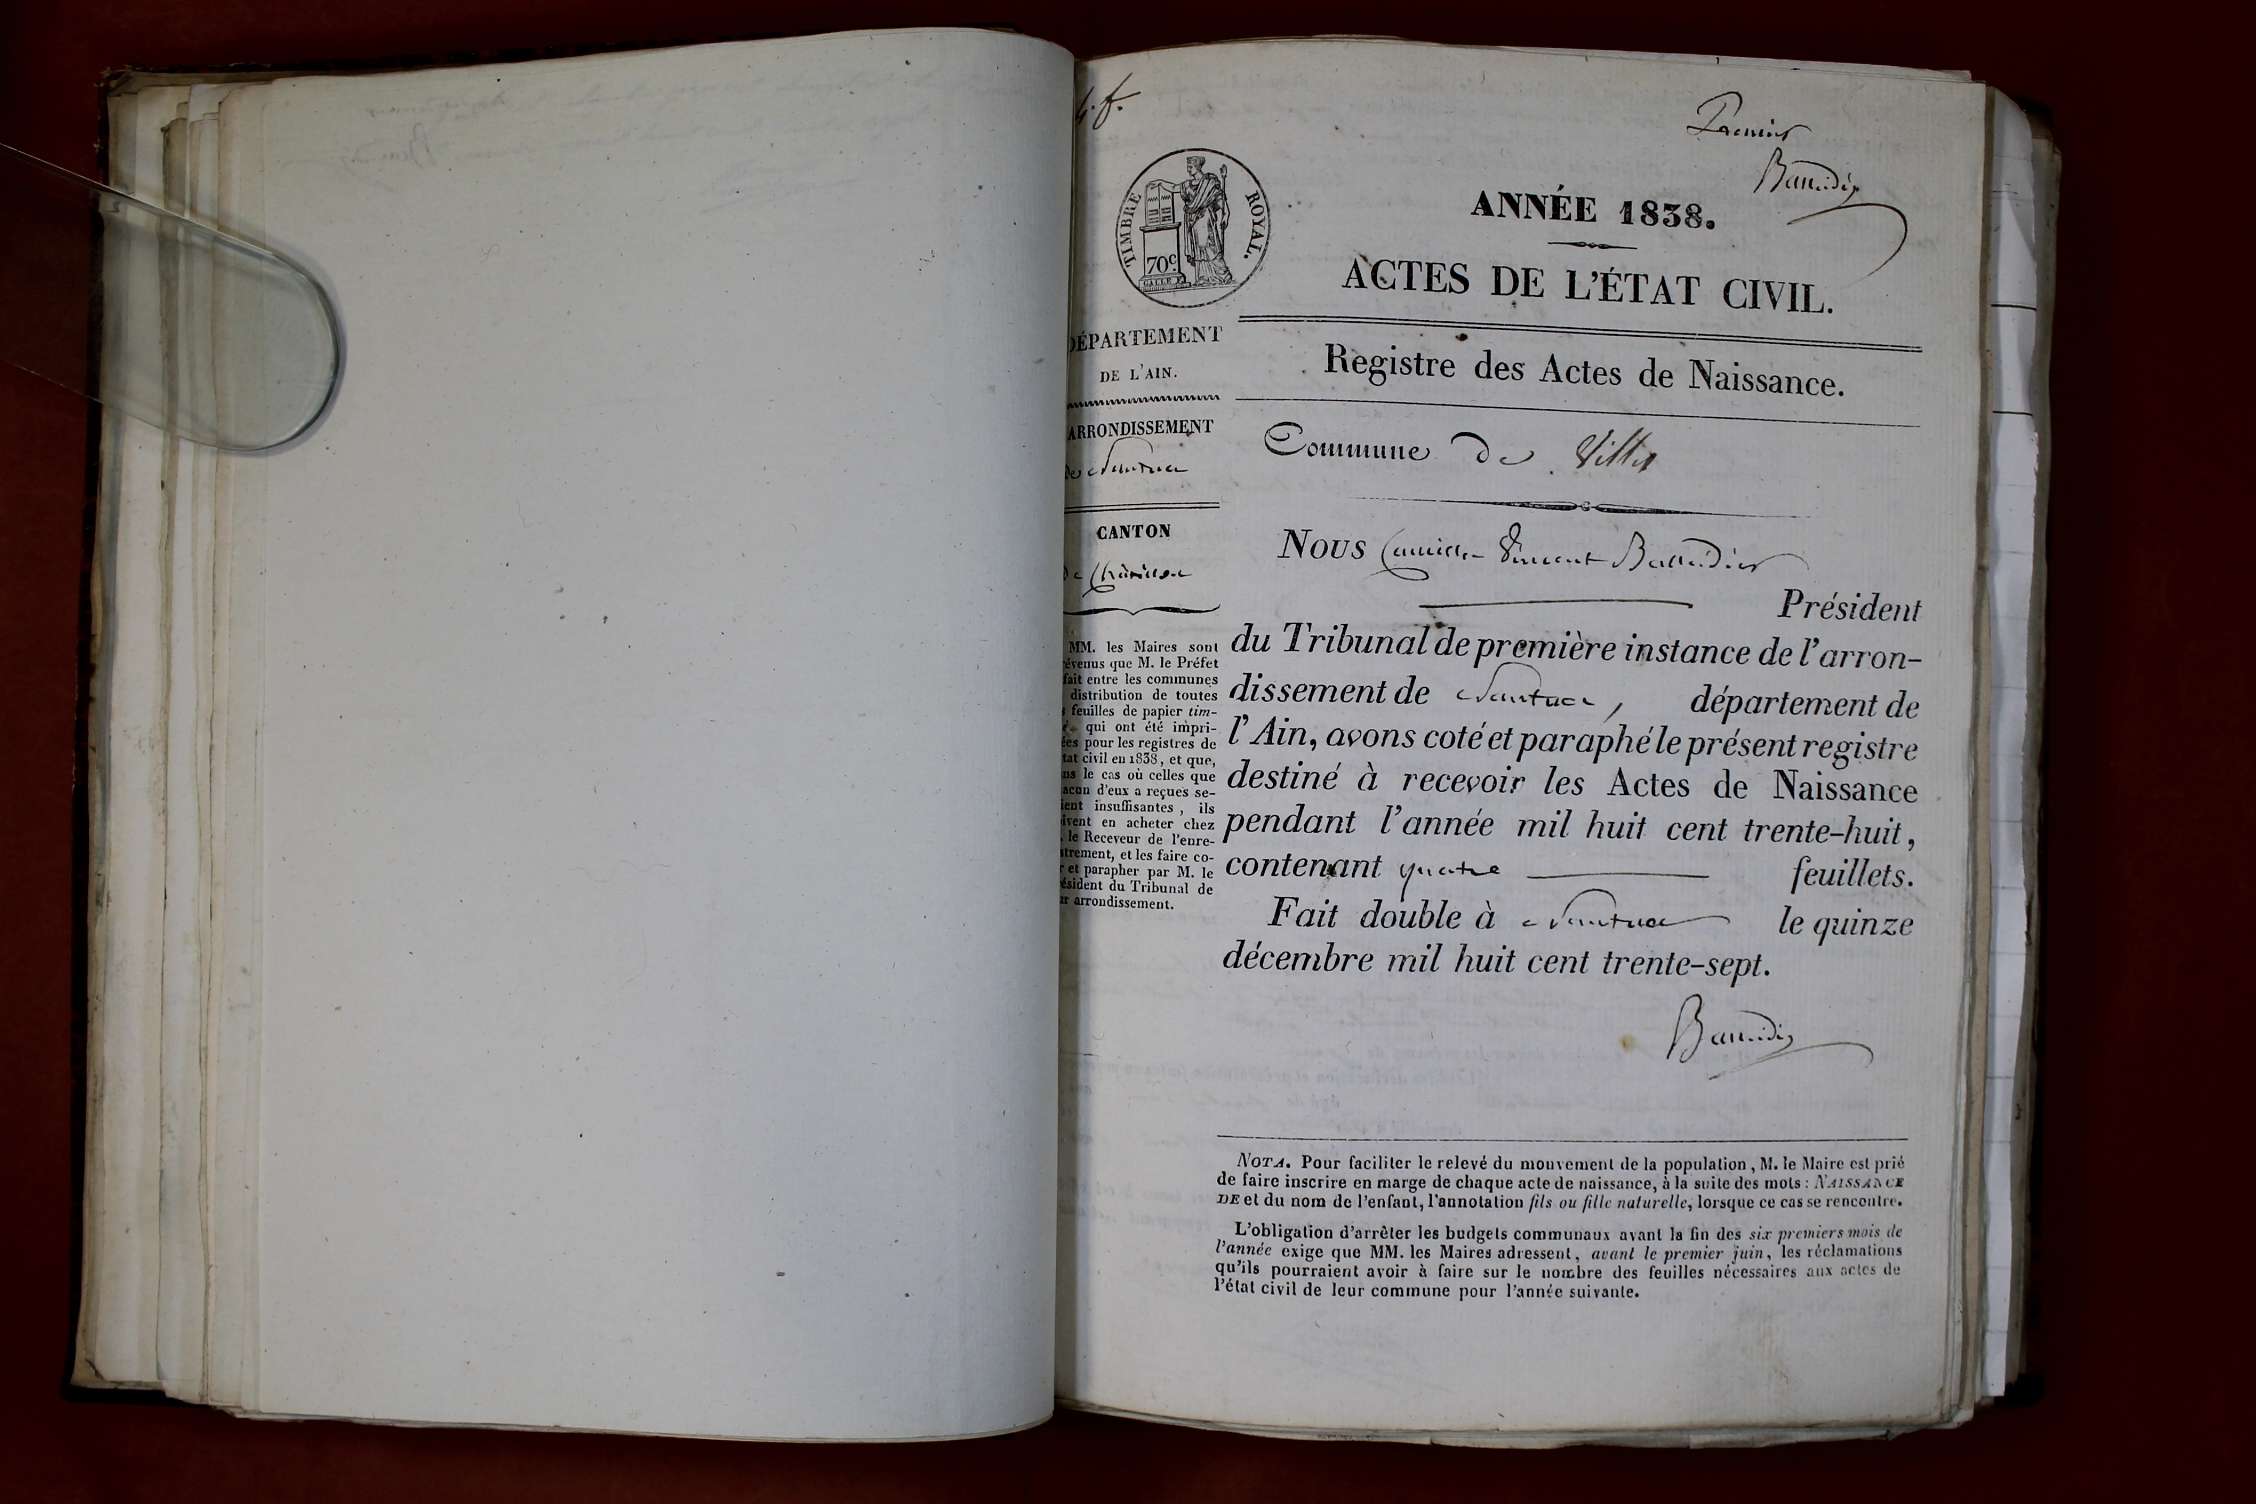 4.f.
Premier
Baudin
TIMBRE ROYAL.
70c.
GALLE F.
ANNÉE 1838.
ACTES DE L'ÉTAT CIVIL.
DÉPARTEMENT
DE L'AIN.
ARRONDISSEMENT
de Nantua
CANTON
de Châtillon
MM. les Maires sont
révenus que M. le Préfet
fait entre les communes
distribution de toutes
feuilles de papier tim-
qui ont été impri-
ées pour les registres de
tat civil en 1838, et que,
ns le cas où celles que
acun d'eux a reçues se-
ient insuffisantes, ils
ivent en acheter chez
. le Receveur de l'enre-
strement, et les faire co-
r et parapher par M. le
ésident du Tribunal de
ur arrondissement.
Registre des Actes de Naissance.
Commune de Villes
NOUS Camille Vincent
Président
du Tribunal de première instance de l'arron-
dissement de Nantua, département de
l'Ain, avons coté et paraphé le présent registre
destiné à recevoir les Actes de Naissance
pendant l'année mil huit cent trente-huit,
contenant quatre feuillets.
Fait double à Nantua le quinze
décembre mil huit cent trente-sept.
NOTA. Pour faciliter le relevé du mouvement de la population, M. le Maire est prié
de faire inscrire en marge de chaque acte de naissance, à la suite des mots : NAISSANCE
DE et du nom de l'enfant, l'annotation fils ou fille naturelle, lorsque ce cas se rencontre.
L'obligation d'arrêter les budgets communaux avant la fin des six premiers mois de
l'année exige que MM. les Maires adressent, avant le premier juin, les réclamations
qu'ils pourraient avoir à faire sur le nombre des feuilles nécessaires aux actes de
l'état civil de leur commune pour l'année suivante.